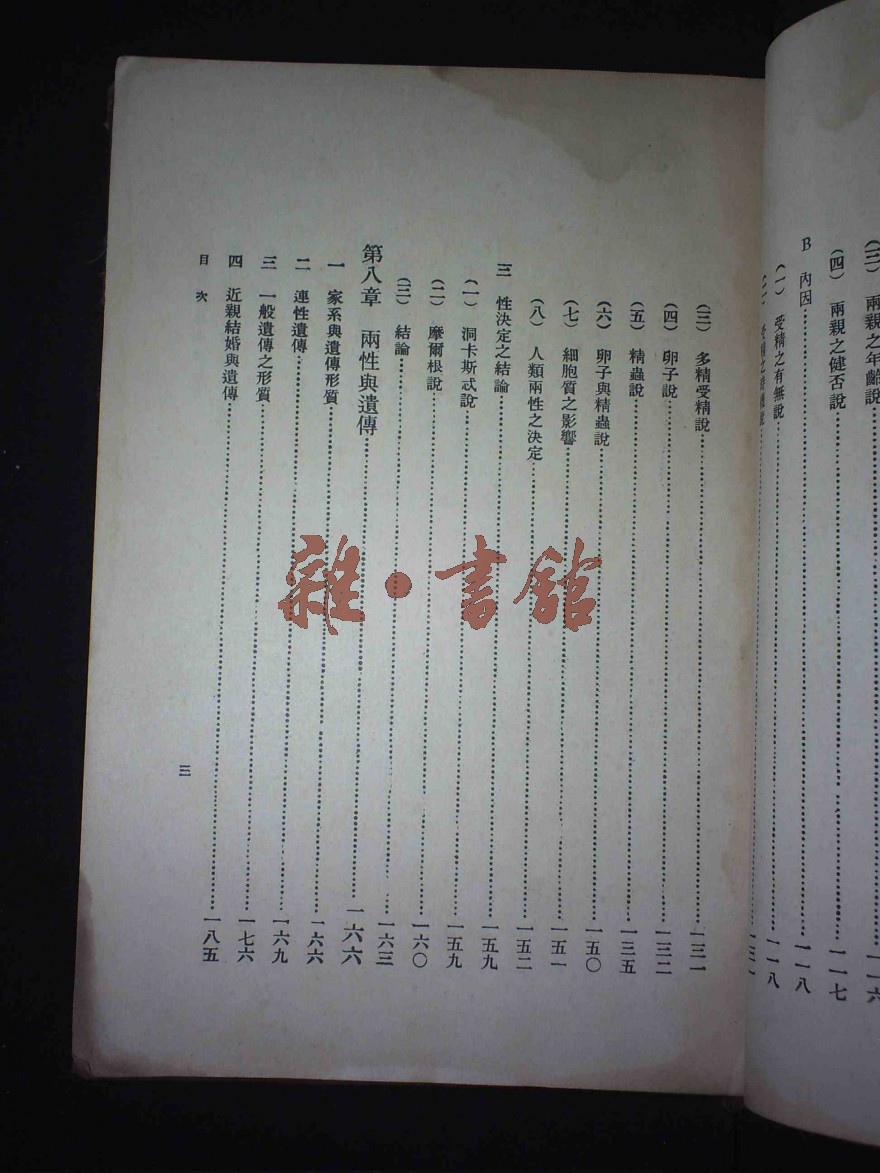 （三） 兩親之年齡說……一一六
（四） 兩親之健否說……一一七
B 內因……一一八
（一） 受精之有無說……一一八
受精之
（三） 多精受精說……一三一
（四） 卵子說……一三二
（五） 精蟲說……一三五
（六） 卵子與精蟲說……一五〇
（七） 細胞質之影響……一五一
（八） 人類兩性之決定……一五二
三 性決定之結論……一五九
（一） 洞卡斯忒說……一五九
（二） 摩爾根說……一六〇
（三） 結論……一六三
第八章 兩性與遺傳……一六六
一 家系與遺傳形質……一六六
二 連性遺傳……一六九
三 一般遺傳之形質……一七六
四 近親結婚與遺傳……一八五
目次
三
雜·書館